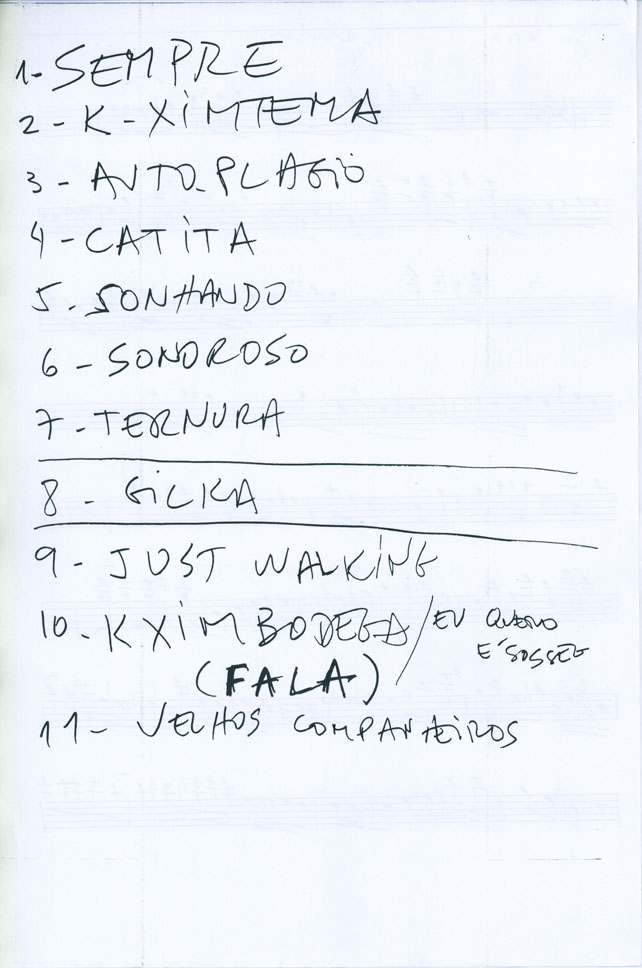 1- SEMPRE
2 - K - XIMTEMA
3 - AUTO-PLAGIO
4 - CATITA
5 - SONHANDO
6 - SONOROSO
7 - TERNURA
8 - GILKA
9 - JUST WALKING
10 - KXIMBODEGA / EU QUERO
É SOSSEG
(FALA)
11 - VELHOS COMPANHEIROS